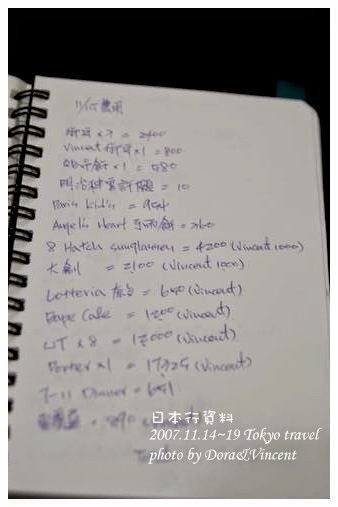 11/15 費用
× 7 = 2400
Vincent × 1 = 800
× 1 = 580
明治神宮許願 = 10
Paris kid's = 954
Angel's Heart 可麗餅 = 760
8 Hatch sunglasses = 4200 (Vincent 1000)
大創 = 2100 (Vincent 1000)
Lotteria = 640 (Vincent)
Cake = 1200 (Vincent)
UT × 8 = 12000 (Vincent)
Porter × 1 = 17325 (Vincent)
7-11 Dinner = 651
= 890
日本行資料
2007.11.14~19 Tokyo travel
photo by Dora&Vincent